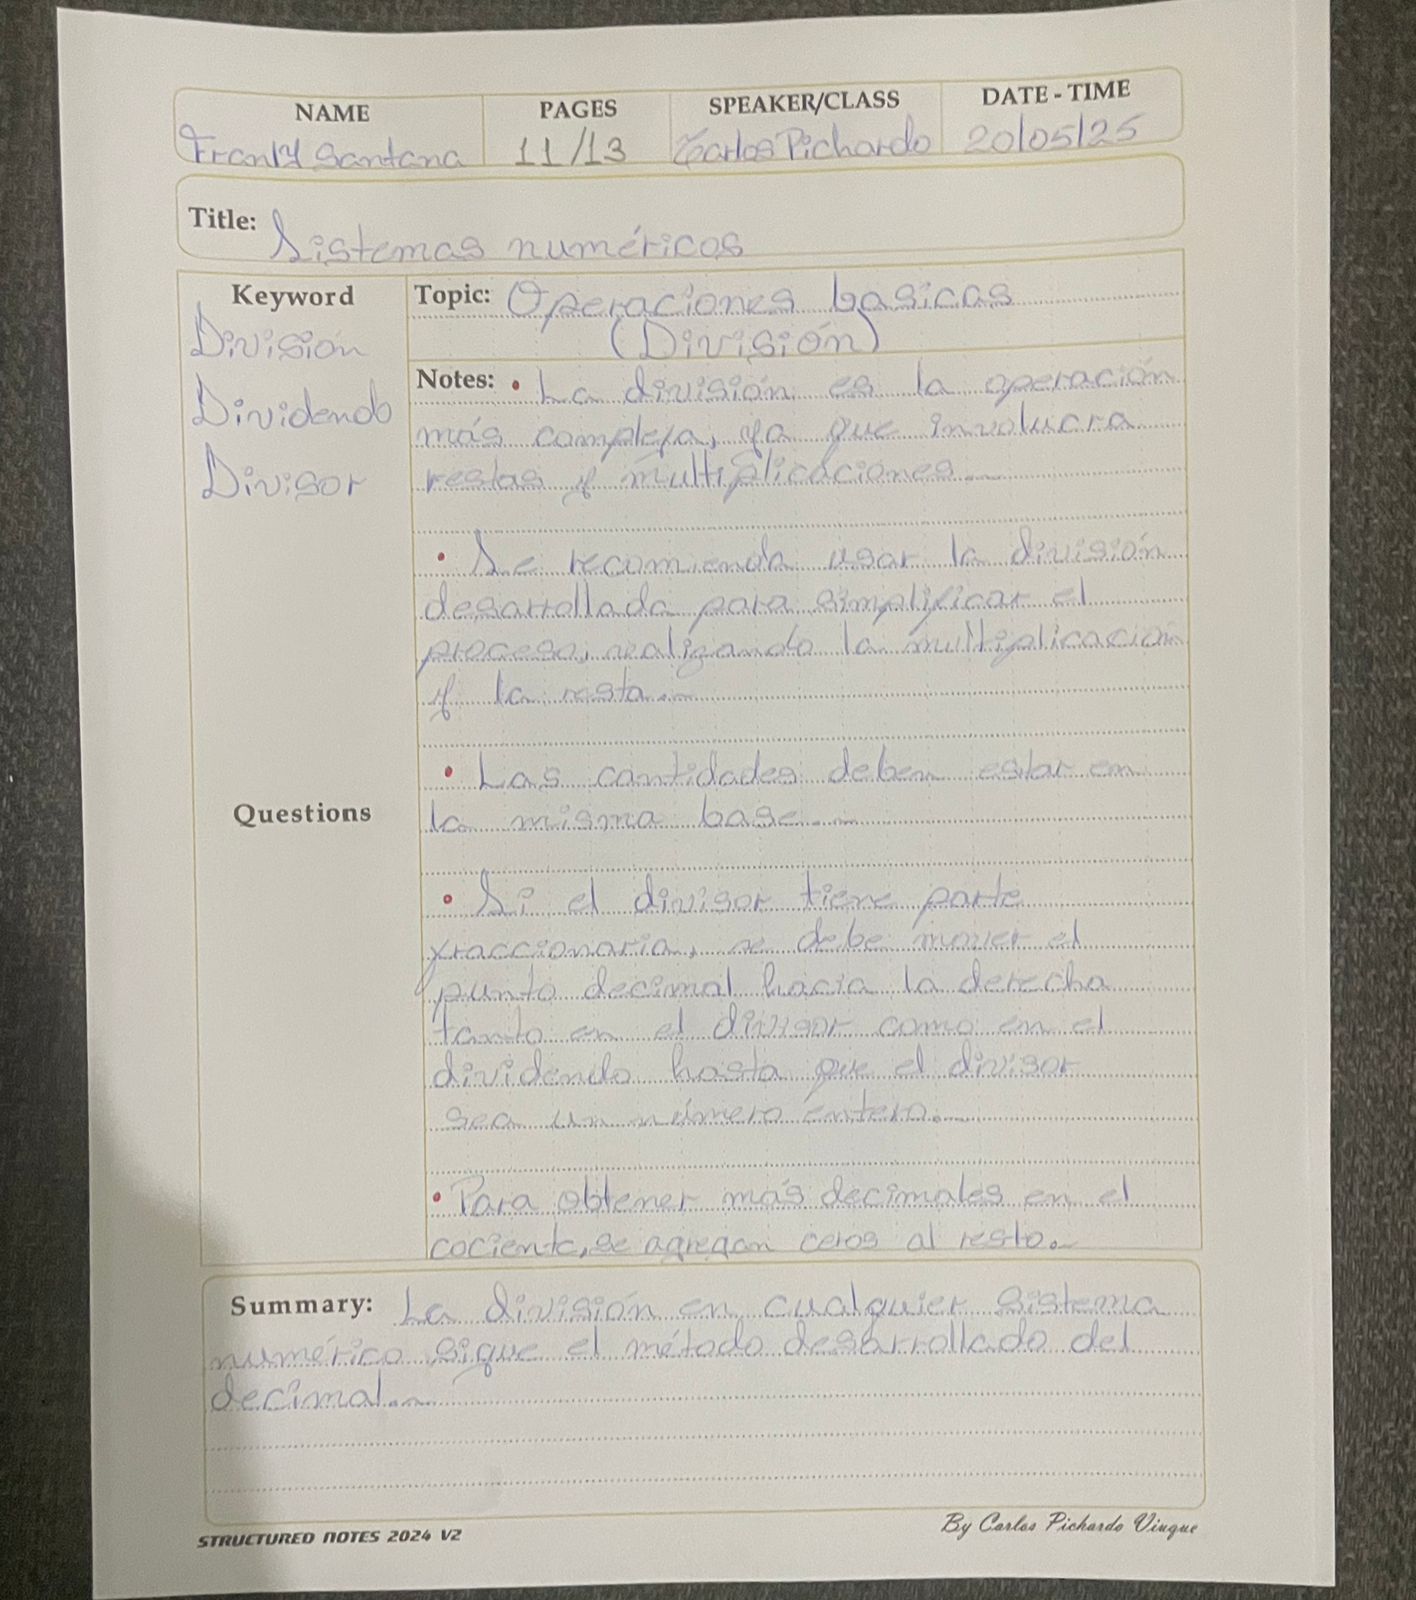 NAME PAGES SPEAKER/CLASS DATE - TIME
Franly Santana 11/13 Carlos Pichardo 20/05/25
Title: Sistemas numéricos
Keyword
División
Dividendo
Divisor
Questions
Topic: Operaciones basicas
(División)
Notes: • La división es la operación
más compleja, ya que involucra
restas y multiplicaciones.
• Se recomienda usar la división
desarrollada para simplificar el
proceso, realizando la multiplicación
y la resta.
• Las cantidades deben estar en
la misma base.
• Si el divisor tiene parte
fraccionaria, se debe mover el
punto decimal hacia la derecha
tanto en el divisor como en el
dividendo hasta que el divisor
sea un número entero.
• Para obtener más decimales en el
cociente, se agregan ceros al resto.
Summary: La división en cualquier sistema
numérico sigue el método desarrollado del
decimal.
STRUCTURED NOTES 2024 V2
By Carlos Pichardo Viuque